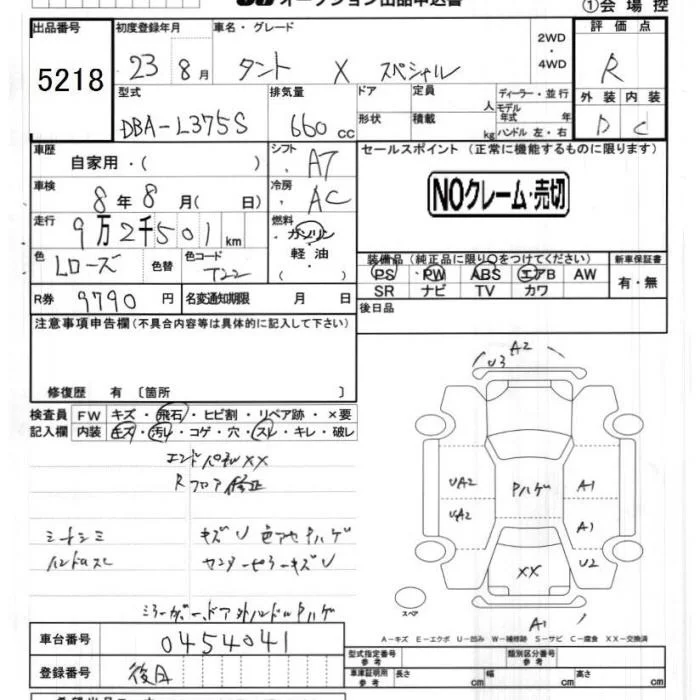 オークション出品申込書
①会場控
出品番号 初度登録年月 車名・グレード 評価点
5218 23年 8月 タント X スペシャル 2WD・4WD R
型式 排気量 ドア 定員 人 ディーラー・並行 外装 内装
DBA-L375S 660cc 形状 積載 kg モデル年式 年 ハンドル 左・右 D C
車歴 自家用・( ) シフト AT セールスポイント (正常に機能するものに限ります)
車検 8年8月( 日) 冷房 AC NOクレーム・売切
走行 9万2千501km 燃料 ガソリン・軽油・( )
色 Lローズ 色替 色コード T22
装備品(純正品に限り○をつけてください) 新車保証書
PS PW ABS エアB AW 有・無
SR ナビ TV カワ
R券 9790円 名変通知期限 月 日 後日品
注意事項申告欄(不具合内容等は具体的に記入して下さい)
修復歴 有 〔箇所 〕
検査員 FW キズ・飛石・ヒビ割・リペア跡・×要
記入欄 内装 キズ・汚レ・コゲ・穴・スレ・キレ・破レ
エンドパネルXX
Rフロア修正
シートシミ キズU 色アセ Pハゲ
ハンドルスレ センターピラーキズU
ミラーガード ドア外ハンドルPハゲ
A2
U3
UA2 Pハゲ A1
UA2 A1
XX U2
スペア A1
A-キズ E-エクボ U-凹み W-補修跡 S-サビ C-腐食 XX-交換済
車台番号 0454041 型式指定番号 参考 類別区分番号 参考
登録番号 後日 車庫証明用 参考 長さ cm 幅 cm 高さ cm